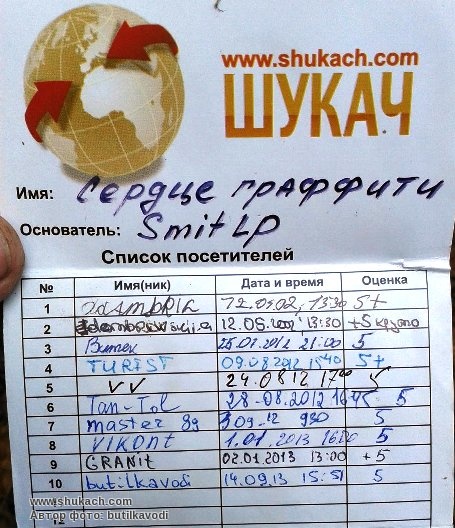 www.shukach.com
ШУКАЧ
Имя: Сердце граффити
Основатель: SmitLP
Список посетителей
№ Имя(ник) Дата и время Оценка
1 13:30 5+
2 13:30 +5
3 2012 21:00 5
4 TURIST 09.08.2012 15:40 5+
5 VV 24.08.12 17:00 5
6 Tan-Tol 28-08.2012 16:45 5
7 master 89 09.12 930 5
8 VIKONT 1.01.2013 16:00 5
9 GRANit 02.01.2013 13:00 +5
10 butilkavodi 14.09.13 15:51 5
www.shukach.com
Автор фото: butilkavodi